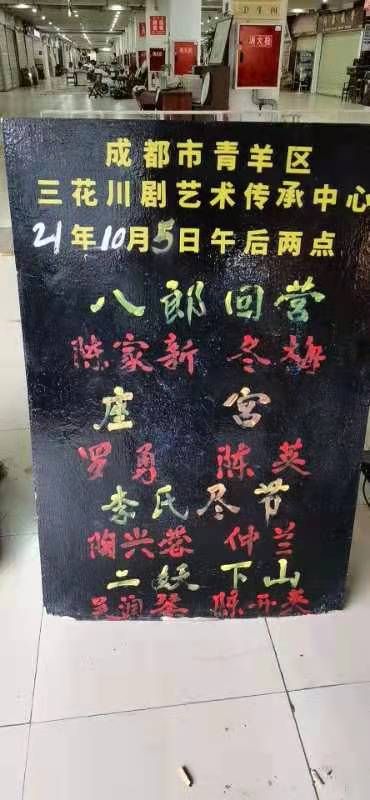 卫生间
消火栓
成都市青羊区
三花川剧艺术传承中心
21年10月5日午后两点
八郎回营
陈家新 冬梅
座 宫
罗勇 陈英
李氏尽节
陶兴蓉 仲兰
二妖下山
润